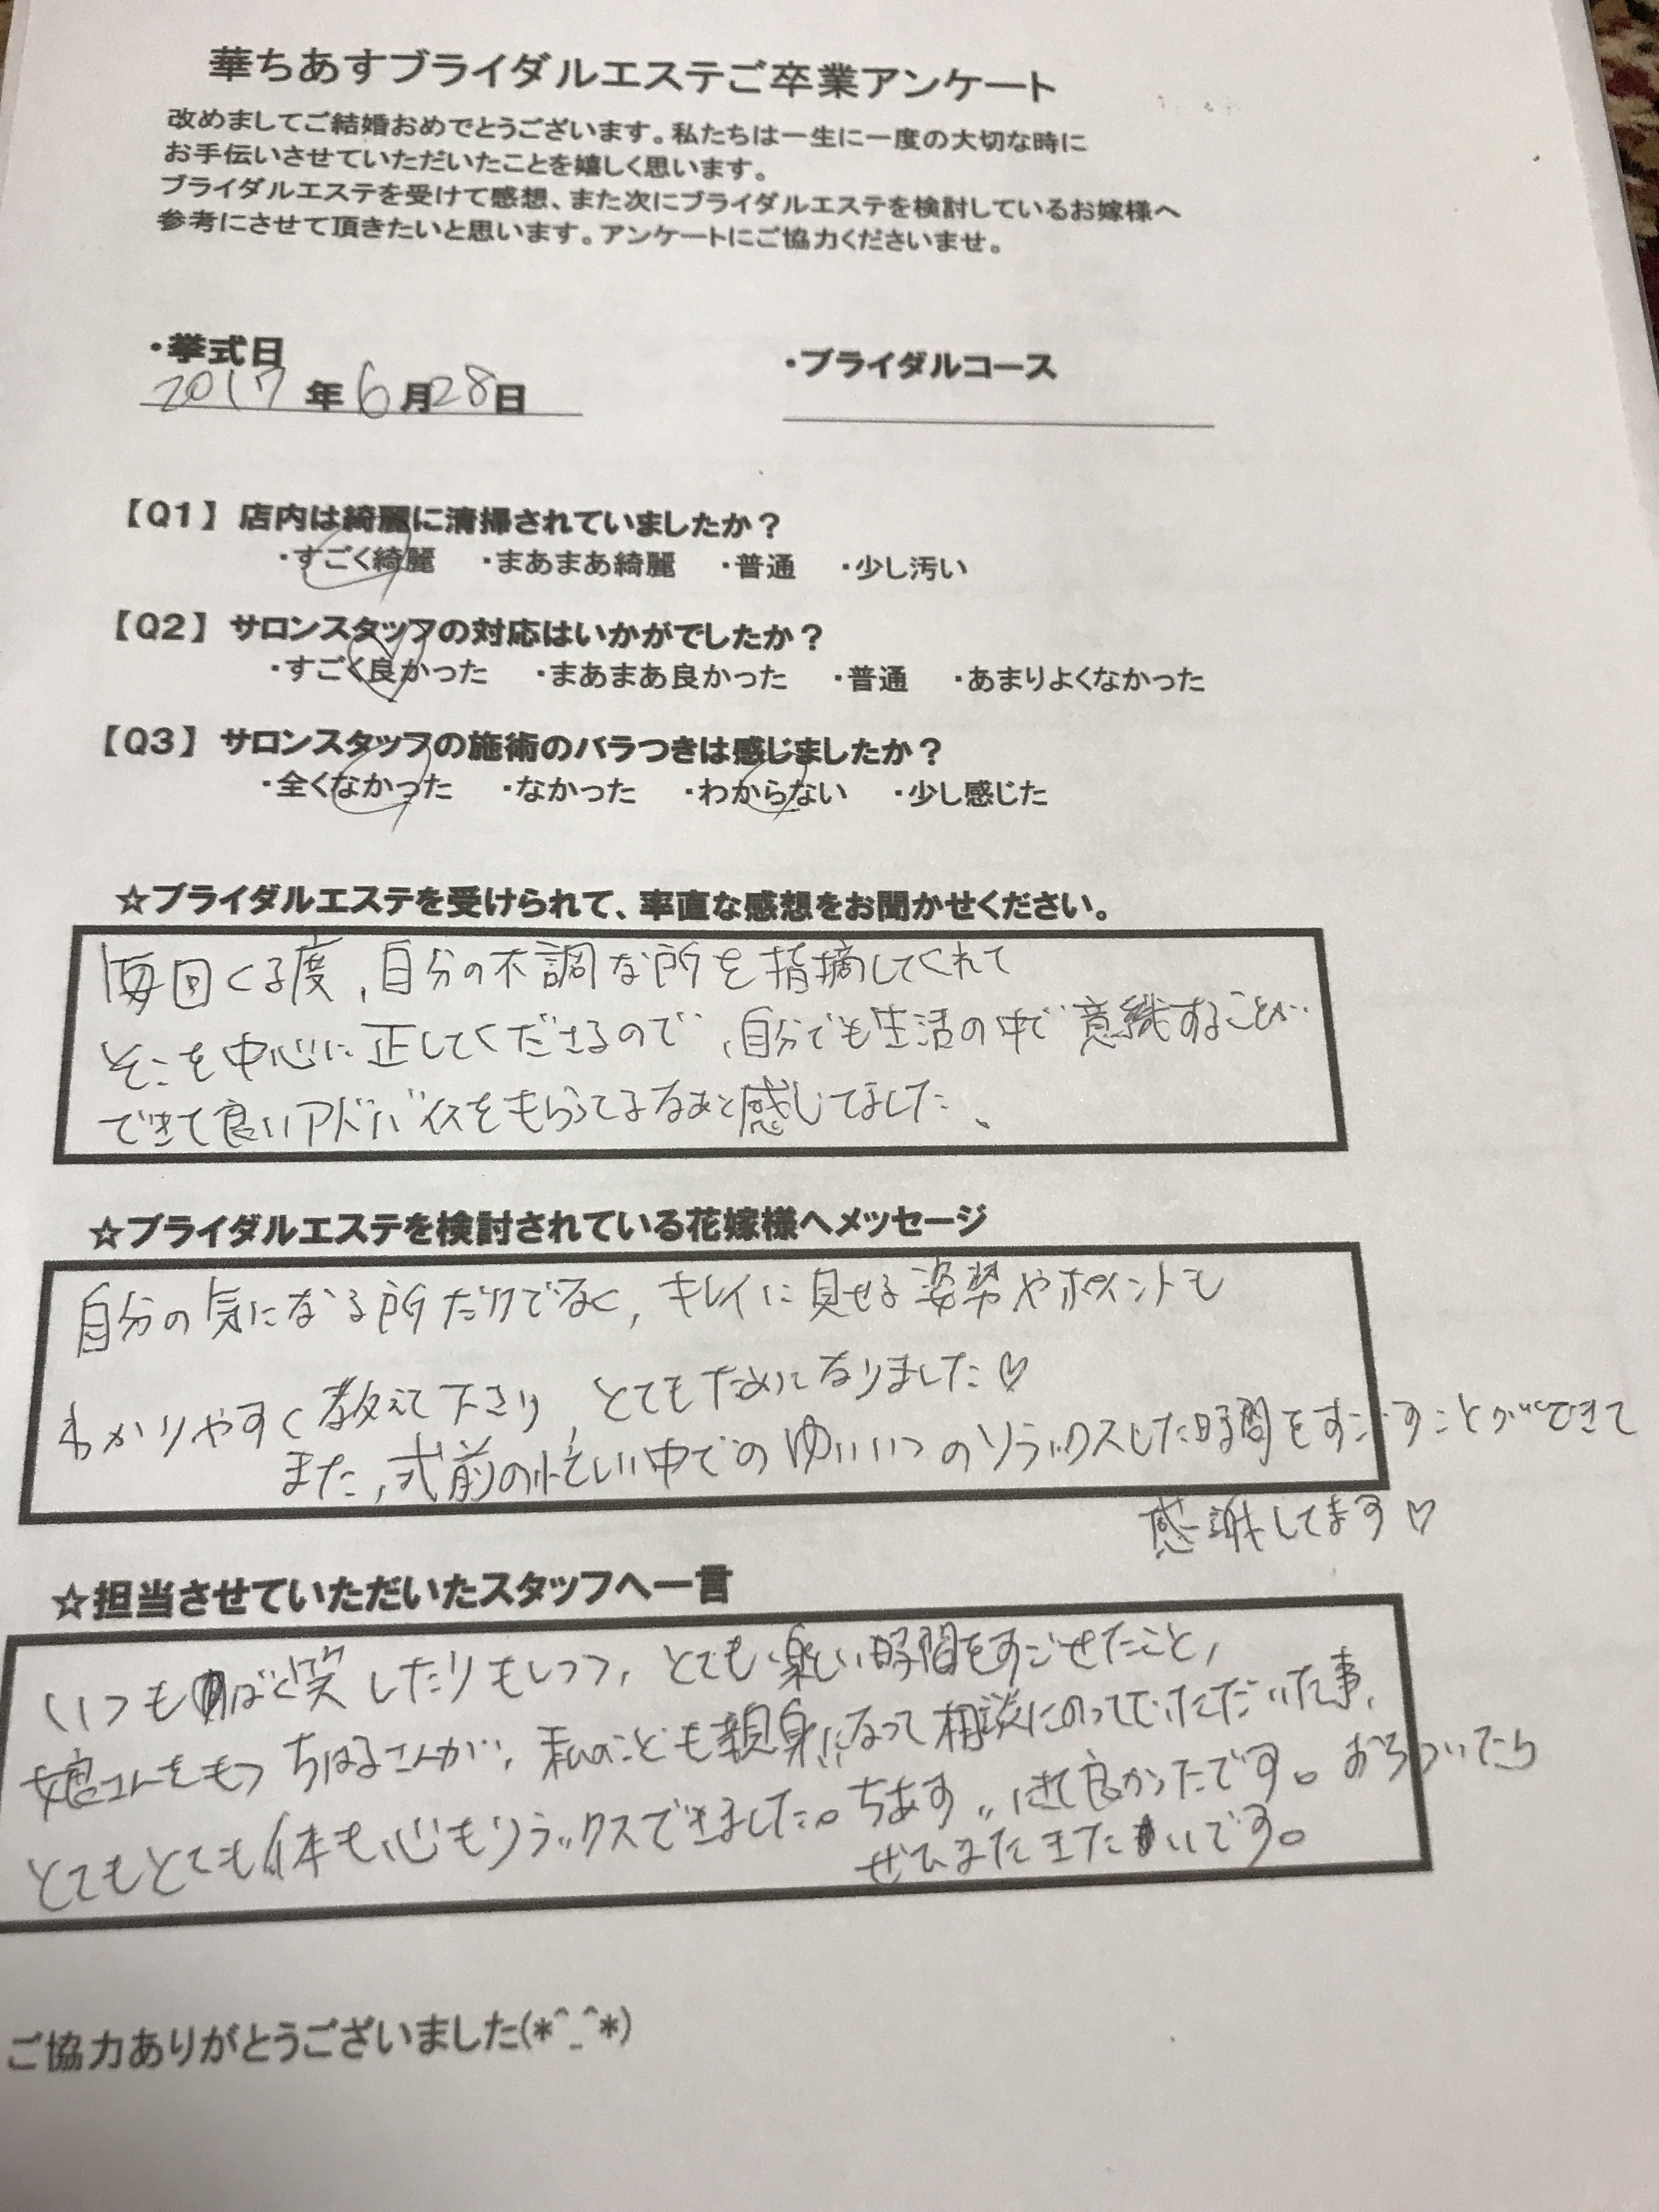 華ちあすブライダルエステご卒業アンケート
改めましてご結婚おめでとうございます。私たちは一生に一度の大切な時に
お手伝いさせていただいたことを嬉しく思います。
ブライダルエステを受けて感想、また次にブライダルエステを検討しているお嫁様へ
参考にさせて頂きたいと思います。アンケートにご協力くださいませ。
・挙式日
2017年6月28日
・ブライダルコース
【Q1】店内は綺麗に清掃されていましたか?
・すごく綺麗 ・まあまあ綺麗 ・普通 ・少し汚い
【Q2】サロンスタッフの対応はいかがでしたか?
・すごく良かった ・まあまあ良かった ・普通 ・あまりよくなかった
【Q3】サロンスタッフの施術のバラつきは感じましたか?
・全くなかった ・なかった ・わからない ・少し感じた
☆ブライダルエステを受けられて、率直な感想をお聞かせください。
毎回くる度、自分の不調な所を指摘してくれて
そこを中心に正してくださるので、自分でも生活の中で意識することが
できて良いアドバイスをもらってるなあと感じてました、
☆ブライダルエステを検討されている花嫁様へメッセージ
自分の気になる所だけでなく、キレイに見せる姿勢やポイントも
わかりやすく教えて下さり、とてもためになりました♡
また、式前の忙しい中でのゆいいつのリラックスした時間をすごすことができて
感謝してます♡
☆担当させていただいたスタッフへ一言
いつもばく笑したりもしつつ、とても楽しい時間をすごせたこと、
娘さんをもつちはるさんが、私のことも親身になって相談にのっていただいた事、
とてもとても体も心もリラックスできました。ちあすにきて良かったです。おちついたら
ぜひまたきたいです。
ご協力ありがとうございました(*^_^*)